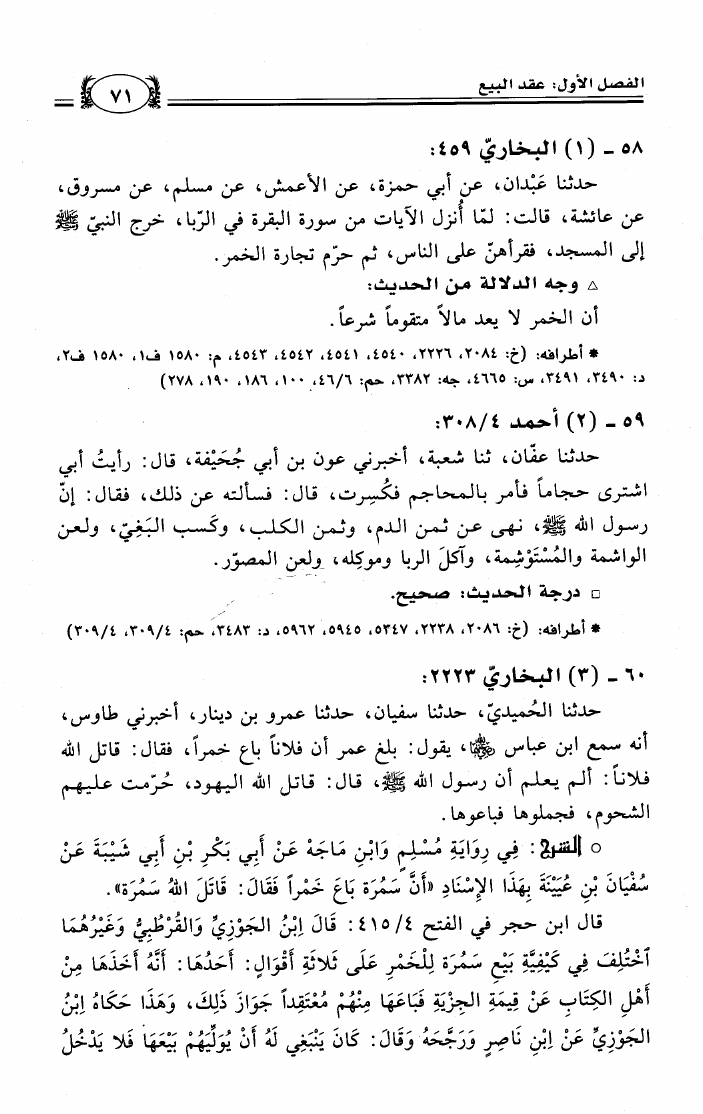 الفصل الأول: عقد البيع
٧١
٥٨ ـ (١) البخاريّ ٤٥٩:
حدثنا عَبْدان، عن أبي حمزة، عن الأعمش، عن مسلم، عن مسروق،
عن عائشة، قالت: لمّا أُنزل الآيات من سورة البقرة في الرّبا، خرج النبيّ ﷺ
إلى المسجد، فقرأهنّ على الناس، ثم حرّم تجارة الخمر.
△ وجه الدلالة من الحديث:
أن الخمر لا يعد مالاً متقوماً شرعاً.
* أطرافه: (خ: ٢٠٨٤، ٢٢٢٦، ٤٥٤٠، ٤٥٤١، ٤٥٤٢، ٤٥٤٣، م: ١٥٨٠ ف١، ١٥٨٠ ف٢،
د: ٣٤٩٠، ٣٤٩١، س: ٤٦٦٥، جه: ٣٣٨٢، حم: ٤٦/٦، ١٠٠، ١٨٦، ١٩٠، ٢٧٨)
٥٩ ـ (٢) أحمد ٣٠٨/٤:
حدثنا عفّان، ثنا شعبة، أخبرني عون بن أبي جُحَيْفة، قال: رأيتُ أبي
اشترى حجاماً فأمر بالمحاجم فكُسِرت، قال: فسألته عن ذلك، فقال: إنّ
رسول الله ﷺ، نهى عن ثمن الدم، وثمن الكلب، وكَسب البَغِيّ، ولعن
الواشمة والمُسْتَوْشِمة، وآكلَ الربا وموكِله، ولعن المصوّر.
□ درجة الحديث: صحيح.
* أطرافه: (خ: ٢٠٨٦، ٢٢٣٨، ٥٣٤٧، ٥٩٤٥، ٥٩٦٢، د: ٣٤٨٣، حم: ٣٠٩/٤، ٣٠٩/٤)
٦٠ ـ (٣) البخاريّ ٢٢٢٣:
حدثنا الحُميديّ، حدثنا سفيان، حدثنا عمرو بن دينار، أخبرني طاوس،
أنه سمع ابن عباس ﵄، يقول: بلغ عمر أن فلاناً باع خمراً، فقال: قاتل الله
فلاناً: ألم يعلم أن رسول الله ﷺ، قال: قاتل الله اليهود، حُرّمت عليهم
الشحوم، فجملوها فباعوها.
○ الشرح: فِي رِوَايَةِ مُسْلِمٍ وَابْنِ مَاجَهْ عَنْ أَبِي بَكْرِ بْنِ أَبِي شَيْبَةَ عَنْ
سُفْيَانَ بْنِ عُيَيْنَةَ بِهَذَا الإِسْنَادِ «أَنَّ سَمُرَةَ بَاعَ خَمْراً فَقَالَ: قَاتَلَ اللهُ سَمُرَةَ».
قال ابن حجر في الفتح ٤١٥/٤: قَالَ اِبْنُ الجَوْزِيِّ وَالقُرْطُبِيُّ وَغَيْرُهُمَا
ٱخْتُلِفَ فِي كَيْفِيَّةِ بَيْعِ سَمُرَةَ لِلْخَمْرِ عَلَى ثَلاثَةِ أَقْوَالٍ: أَحَدُهَا: أَنَّهُ أَخَذَهَا مِنْ
أَهْلِ الكِتَابِ عَنْ قِيمَةِ الجِزْيَةِ فَبَاعَهَا مِنْهُمْ مُعْتَقِداً جَوَازَ ذَلِكَ، وَهَذَا حَكَاهُ اِبْنُ
الجَوْزِيِّ عَنْ اِبْنِ نَاصِرٍ وَرَجَّحَهُ وَقَالَ: كَانَ يَنْبَغِي لَهُ أَنْ يُوَلِّيَهُمْ بَيْعَهَا فَلا يَدْخُلُ